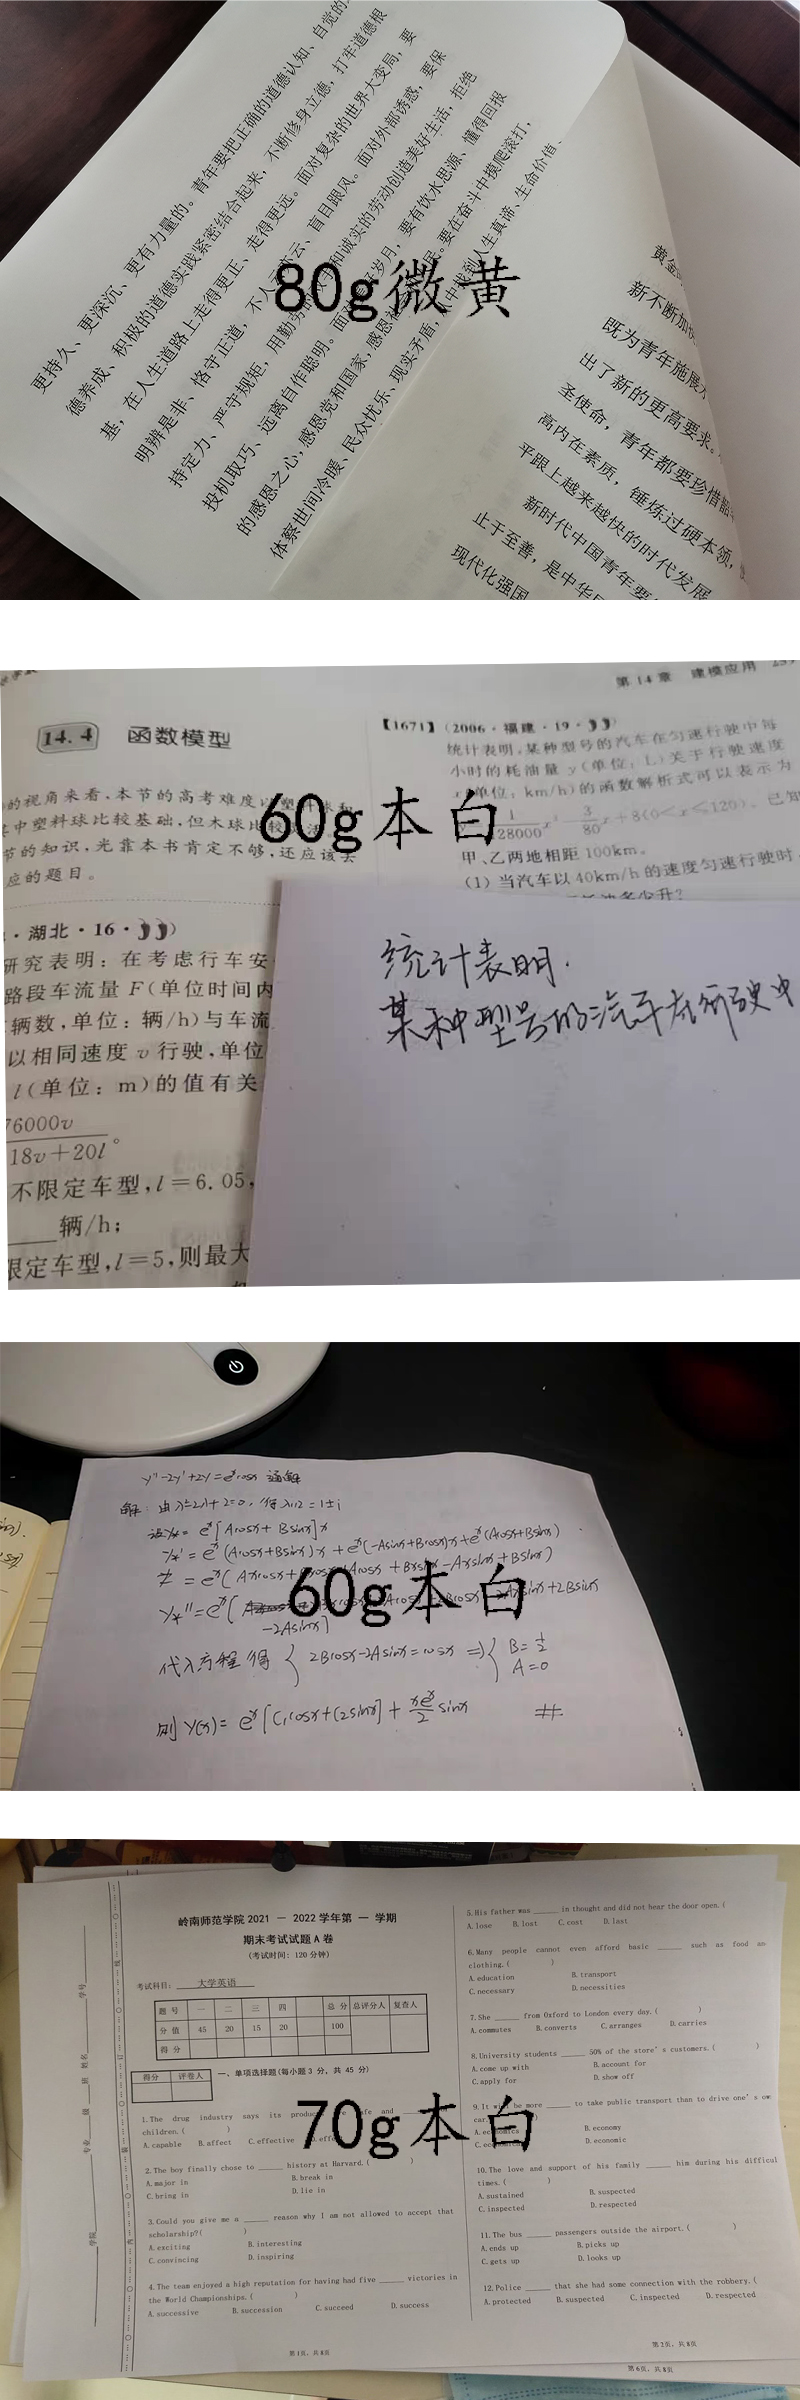 更持久、更深沉、更有力量的。青年要把正确的道德认知、自觉的
德养成、积极的道德实践紧密结合起来，不断修身立德，打牢道德根
基，在人生道路上走得更正、走得更远。面对复杂的世界大变局，要
明辨是非、恪守正道，不人云亦云、盲目跟风。面对外部诱惑，要保
持定力、严守规矩，用勤劳的双手和诚实的劳动创造美好生活，拒绝
投机取巧、远离自作聪明。面对美好岁月，要有饮水思源、懂得回报
的感恩之心，感恩党和国家，感恩社会和人民。要在奋斗中摸爬滚打，
体察世间冷暖、民众忧乐、现实矛盾，从中找到人生真谛、生命价值、
80g微黄
黄金
新不断加快
既为青年施展
出了新的更高要求。
圣使命，青年都要珍惜韶
高内在素质，锤炼过硬本领，
平跟上越来越快的时代发展
新时代中国青年要
止于至善，是中华
现代化强国
第14章 建模应用
14.4 函数模型
的视角来看，本节的高考难度以塑料球和
中塑料球比较基础，但木球比较灵活。
节的知识，光靠本书肯定不够，还应该去
应的题目。
【1671】（2006·福建·19·）
统计表明，某种型号的汽车在匀速行驶中每
小时的耗油量 y（单位：L）关于行驶速度
x（单位：km/h）的函数解析式可以表示为
1/128000 x³-3/80 x+8(0<x≤120)。已知
甲、乙两地相距100km。
(1) 当汽车以40km/h的速度匀速行驶时，
60g本白
·湖北·16·）
研究表明：在考虑行车安
路段车流量 F（单位时间内
辆数，单位：辆/h）与车流
以相同速度 v 行驶，单位
l（单位：m）的值有关
76000v
18v+20l。
不限定车型，l=6.05，
辆/h；
限定车型，l=5，则最大
统计表明.
某种型号的汽车在行驶中
y''-2y'+2y=eˣcosx 通解
解：由λ²-2λ+2=0，得λ1,2=1±i
设y*=eˣ[Acosx+Bsinx]x
y*'=eˣ(Acosx+Bsinx)x+eˣ(-Asinx+Bcosx)x+eˣ(Acosx+Bsinx)
-2Asinx]
代入方程得 { 2Bcosx-2Asinx=cosx ⇒ { B=1/2
A=0
则 y(x)=eˣ[C1cosx+C2sinx]+xeˣ/2 sinx #
60g本白
岭南师范学院 2021 — 2022 学年第 一 学期
期末考试试题 A 卷
(考试时间：120 分钟)
考试科目： 大学英语
题 号 一 二 三 四 总 分 总评分人 复查人
分 值 45 20 15 20 100
得 分
得分 评卷人
一、单项选择题(每小题 3 分，共 45 分)
1.The drug industry says its products are safe and ______
children.( )
A.capable B.affect C.effective D.effect
2.The boy finally chose to ______ history at Harvard.( )
A.major in B.break in
C.bring in D.lie in
3.Could you give me a ______ reason why I am not allowed to accept that
scholarship?( )
A.exciting B.interesting
C.convincing D.inspiring
4.The team enjoyed a high reputation for having had five ______ victories in
the World Championships.( )
A.successive B.succession C.succeed D.success
第 1页，共 8页
5.His father was ______ in thought and did not hear the door open.(
A.lose B.lost C.cost D.last
6.Many people cannot even afford basic ______ such as food an
clothing.( )
A.education B.transport
C.necessary D.necessities
7.She ______ from Oxford to London every day.( )
A.commutes B.converts C.arranges D.carries
8.University students ______ 50% of the store's customers.( )
A.come up with B.account for
C.apply for D.show off
9.It will be more ______ to take public transport than to drive one's ow
car.( )
A.economics B.economy
C.economical D.economic
10.The love and support of his family ______ him during his difficul
times.( )
A.sustained B.suspected
C.inspected D.respected
11.The bus ______ passengers outside the airport.( )
A.ends up B.picks up
C.gets up D.looks up
12.Police ______ that she had some connection with the robbery.(
A.protected B.suspected C.inspected D.respected
第 2页，共 8页
第 6页，共 8页
70g本白
学院 专业 级 班 姓名 学号